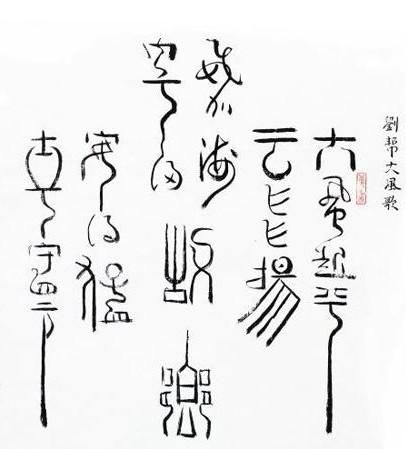 劉帮大風歌
大風起兮
云飛揚
威加海
内兮歸故鄉
安得猛
士兮守四方